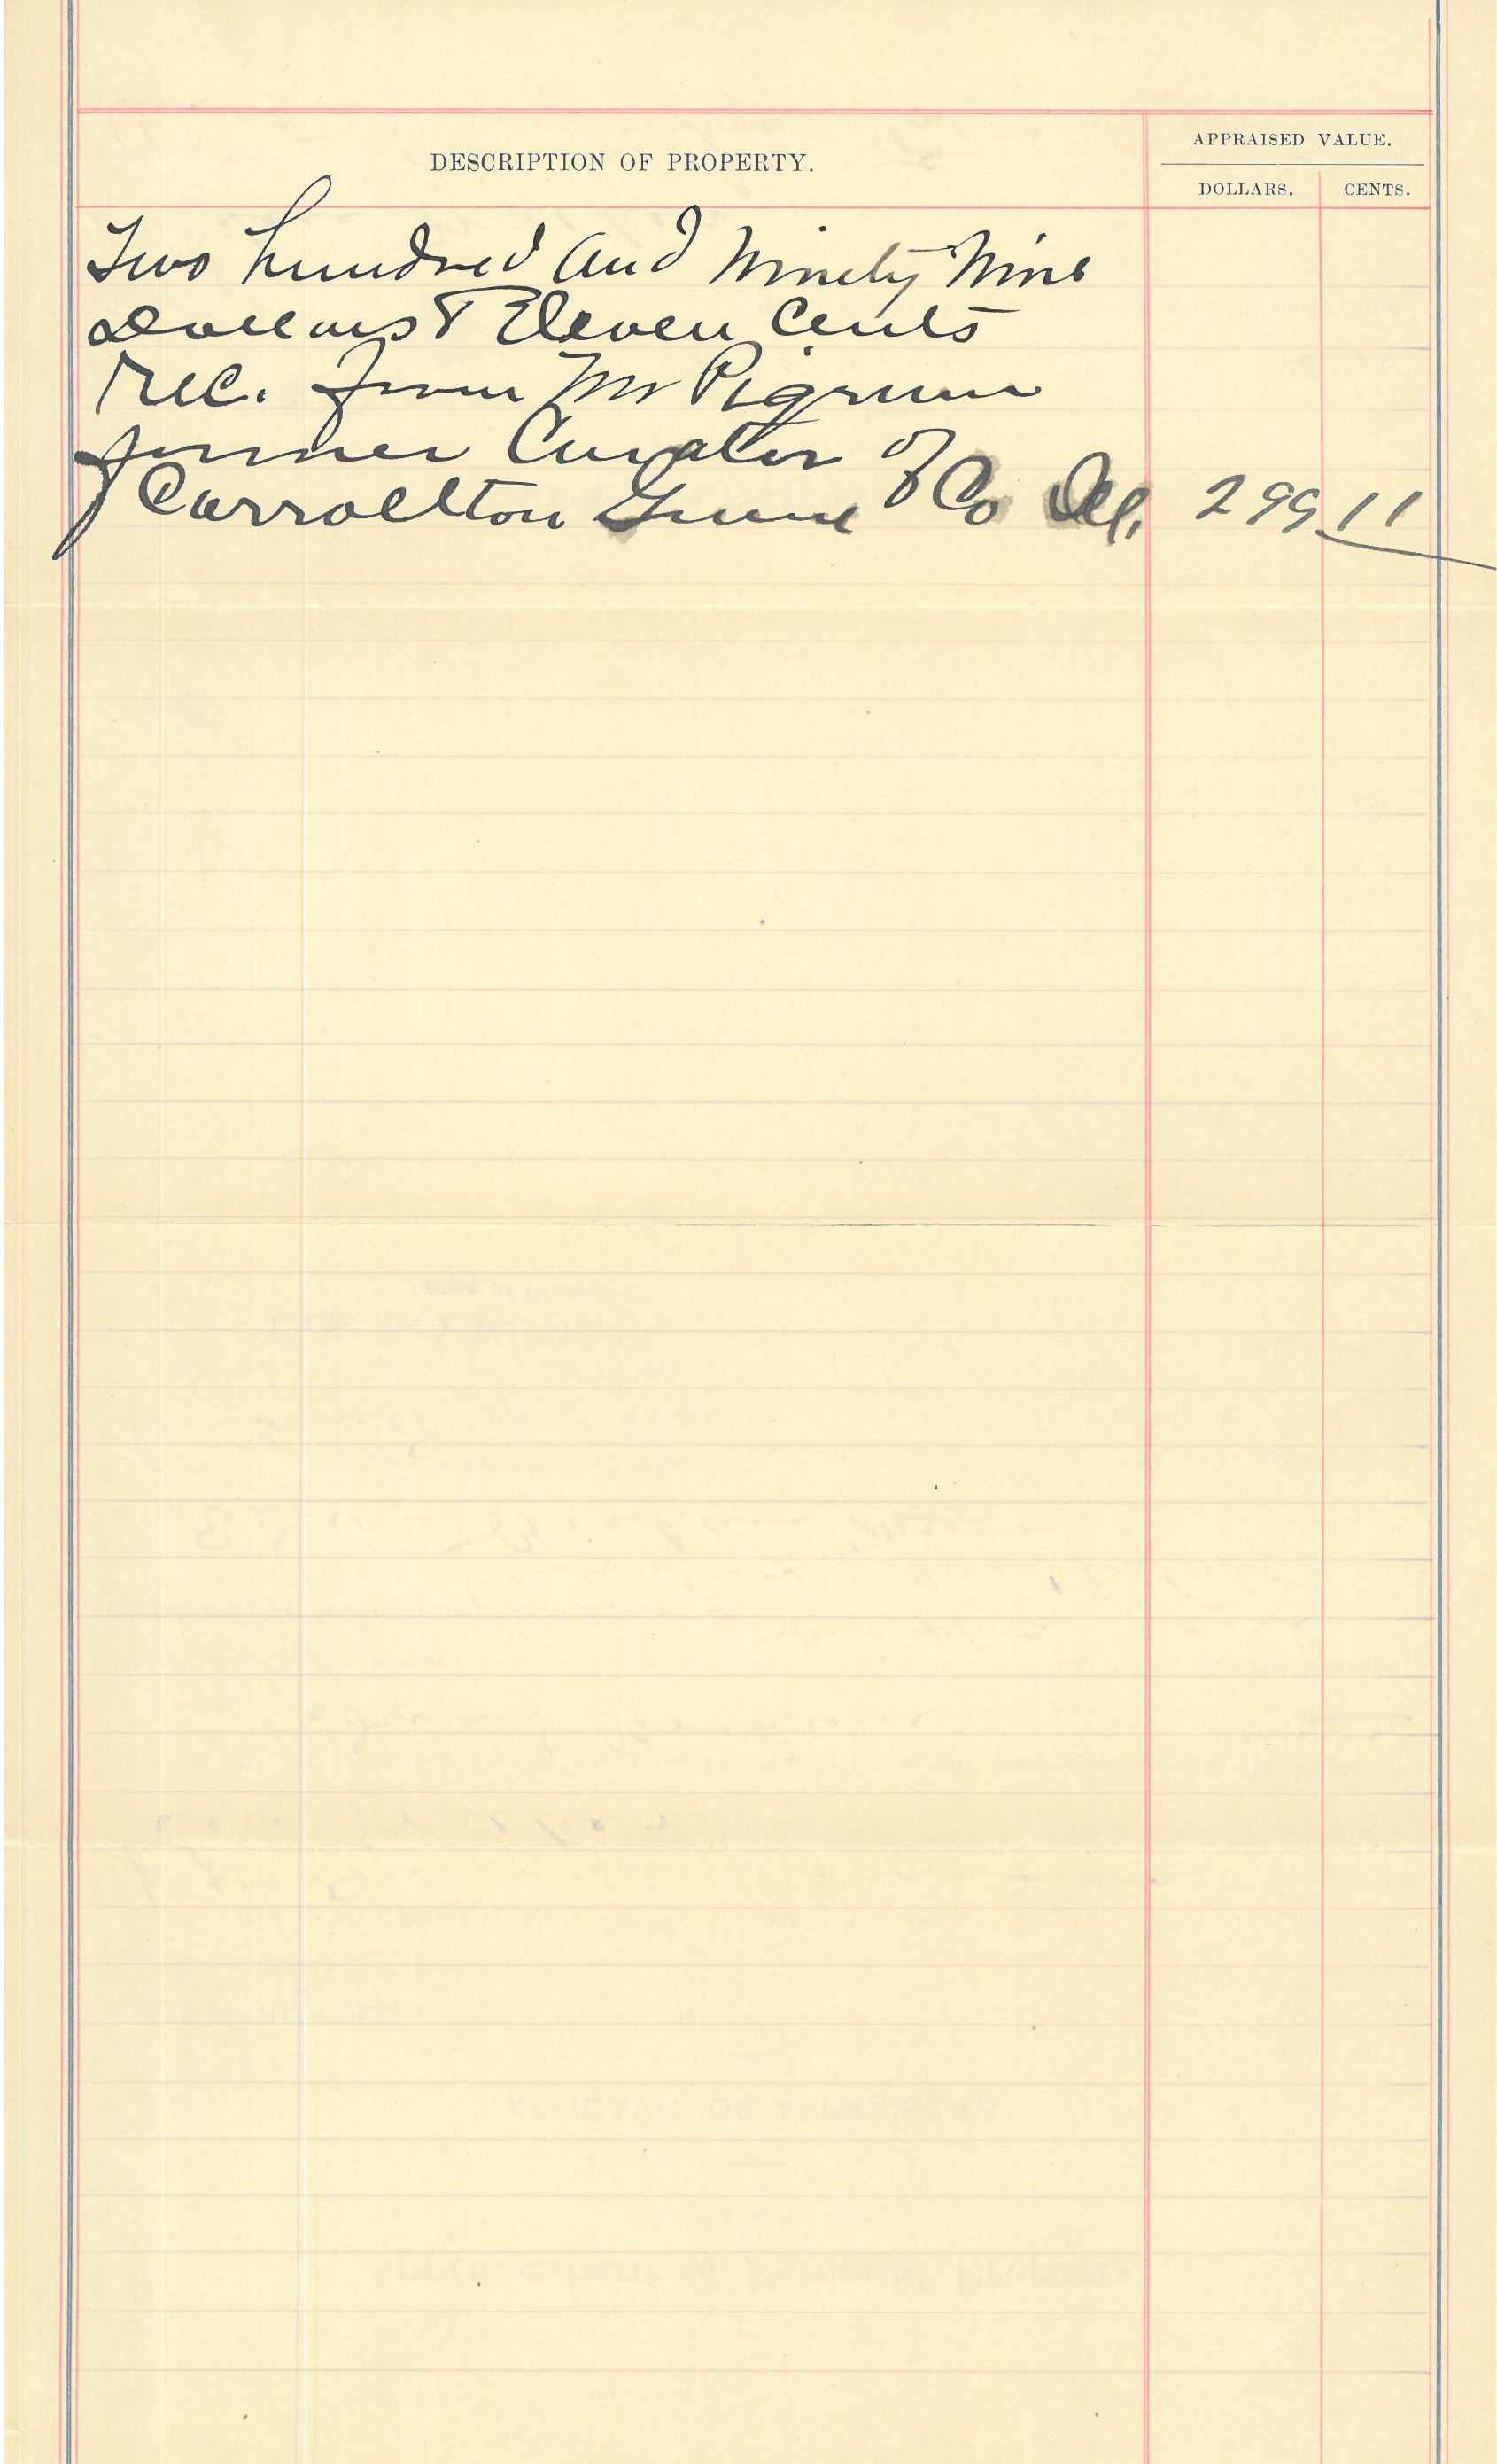 DESCRIPTION OF PROPERTY.
APPRAISED VALUE.
DOLLARS. CENTS.
Two hundred and Ninety Nine
Dollars & Eleven Cents
rec. from Mr Pigrum
former Curator of
Carrollton Greene Co Ill. 299 11